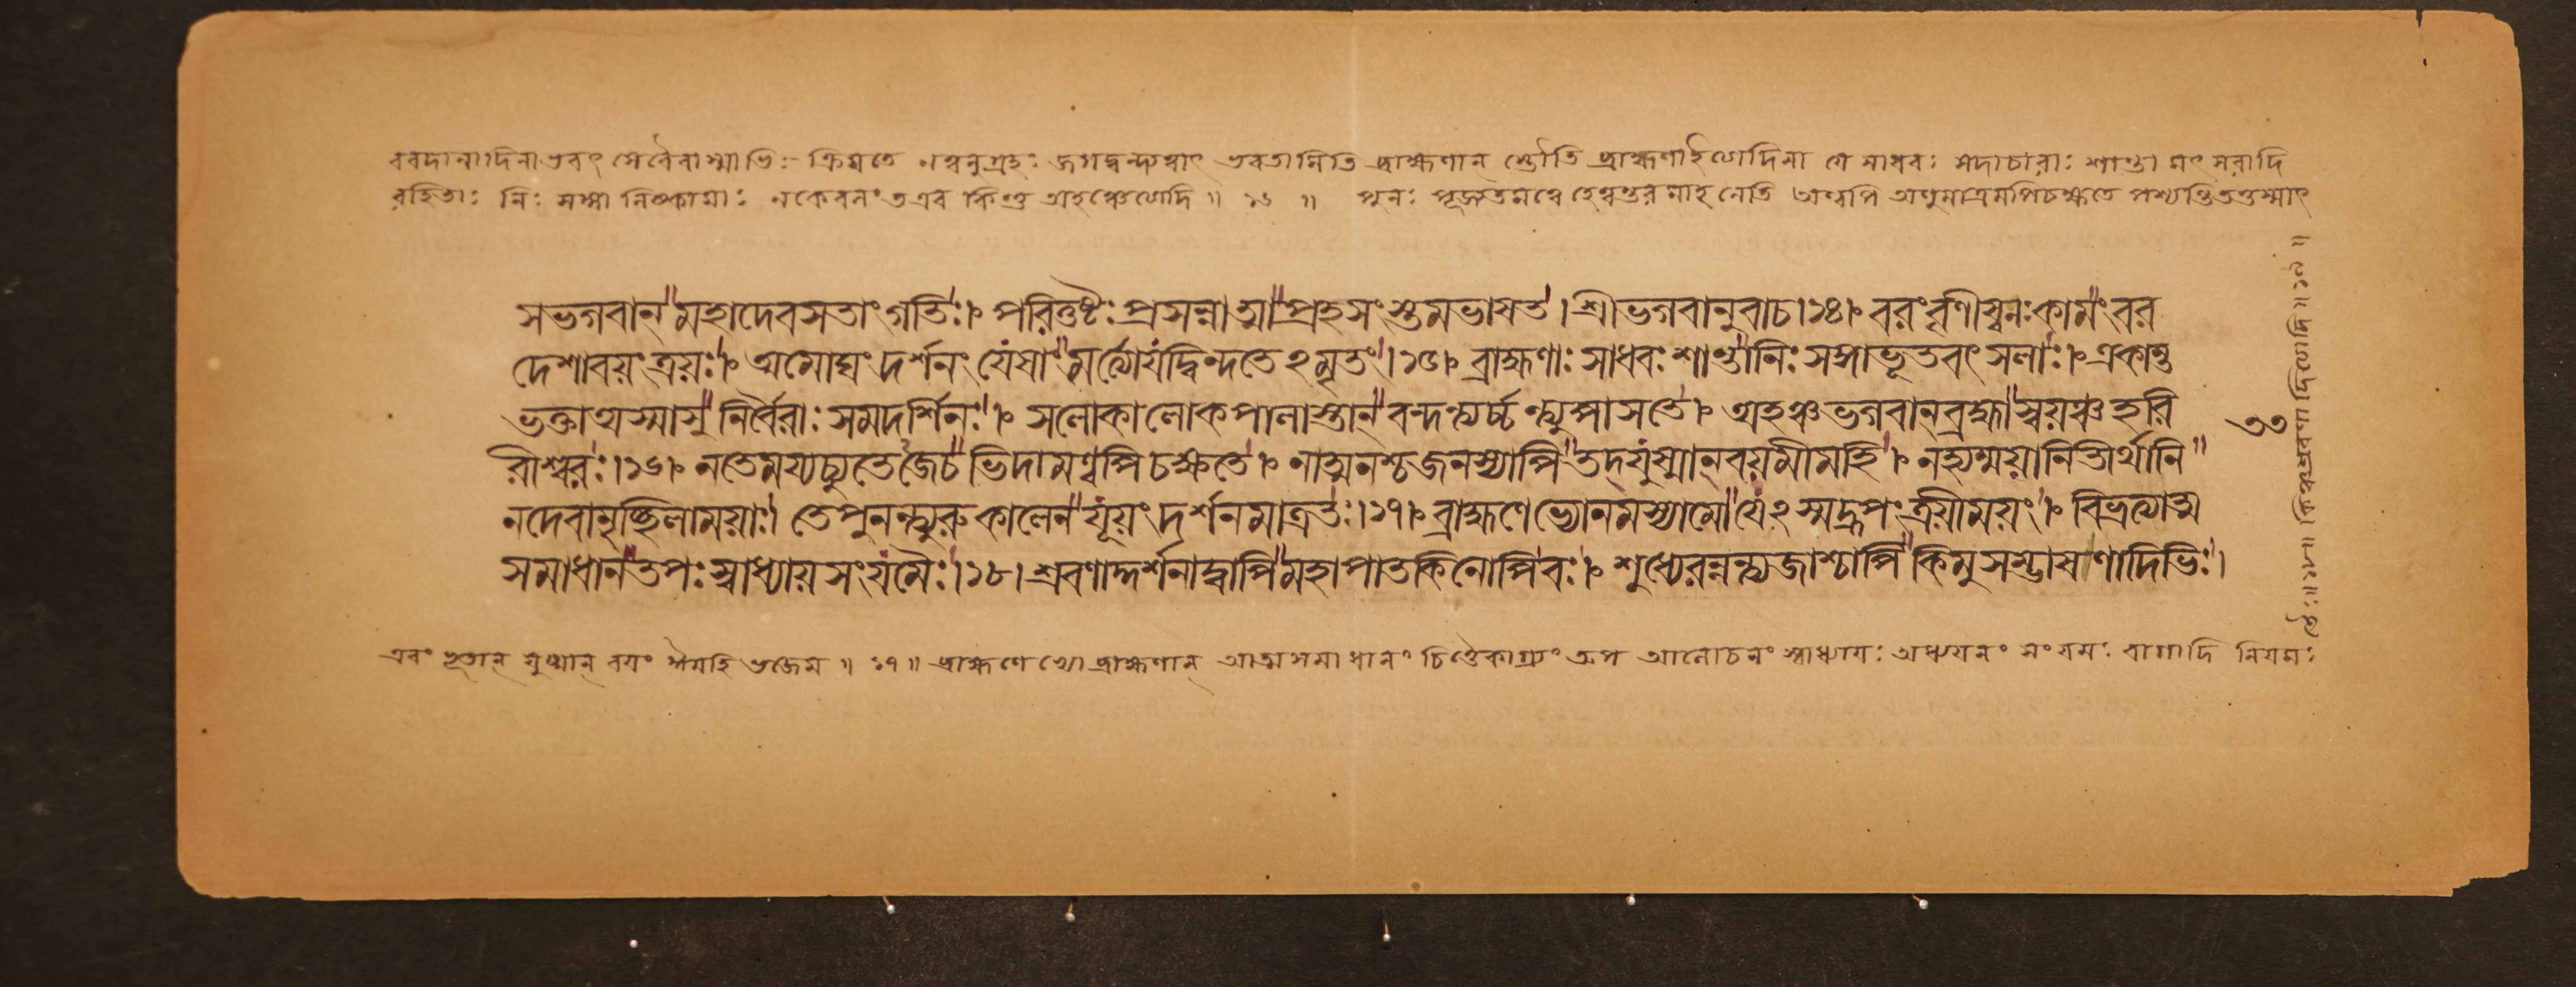 ববদানাদিনাএবং সেবৈবাস্মাভিঃ ক্রিয়তে নন্বনুগ্রহঃ জগদ্বন্দ্যত্বাৎ এবতানিতি ব্রাহ্মণান স্তৌতি ব্রাহ্মণাইত্যেদিনা যে সাধবঃ সদাচারাঃ শান্তা মৎসরাদি
রহিতাঃ নিঃ সঙ্গা নিষ্কামাঃ নকেবলং তএব কিন্তু অহঞ্চেত্যেদি ॥ ১৬ ॥ পুনঃ পূজ্যতমত্বে হেত্বন্তরমাহ নেতি অন্বপি অণুমাত্রমপিচক্ষতে পশ্যন্তিতত্তস্মাৎ
সভগবান্ মহাদেবসতাং গতিঃ। পরিতুষ্টঃ প্রসন্নাত্মা প্রহসং স্তমভাষত। শ্রীভগবানুবাচ।১৪। বরং বৃণীষ্বনঃ কামং বর
দেশাবয়ং ত্রয়ঃ। অমোঘং দর্শনং যেষাং মর্ত্যোযদ্বিন্দতেঽমৃতং।১৫। ব্রাহ্মণাঃ সাধবঃ শান্তানিঃ সঙ্গাভূতবৎ সলাঃ। একান্ত
ভক্তাঅস্মাসু নির্বৈরাঃ সমদর্শিনঃ। সলোকালোকপালাস্তান্ বন্দন্ত্যর্চ্চন্ত্যুপাসতে। অহঞ্চ ভগবানব্রহ্মা স্বয়ঞ্চ হরি
রীশ্বরঃ।১৬। নতেময্যচ্যুতেঽজেচ ভিদামণ্বপি চক্ষতে। নাত্মনশ্চ জনস্যাপি তদ্যুষ্মান্ বয়মীমহি। নহ্যম্ময়ানিতীর্থানি
নদেবামৃচ্ছিলাময়াঃ। তেপুনন্ত্যুরুকালেন যূয়ং দর্শনমাত্রতঃ।১৭। ব্রাহ্মণেভ্যোনমস্যামো যেঽস্মদ্রূপং ত্রয়ীময়ং। বিভ্রত্যাত্ম
সমাধান তপঃ স্বাধ্যায় সংযমৈঃ।১৮। শ্রবণাদ্দর্শনাদ্বাপি মহাপাতকিনোপিবঃ। শুধ্যেরন্নন্ত্যজাশ্চাপি কিমু সম্ভাষণাদিভিঃ।
৩৩
এবং ভূতান্ যুষ্মান্ বয়ং ঈমহি ভজেম ॥ ১৭ ॥ ব্রাহ্মণেভ্যো ব্রাহ্মণান্ আত্মসমাধানং চিত্তৈকাগ্র্যং তপ আলোচনং স্বাধ্যায়ঃ অধ্যয়নং সংযমঃ বাগাদি নিয়মঃ
তৈঃ॥১৮॥ কিঞ্চশ্রবণাদিত্যেদি॥১৯॥